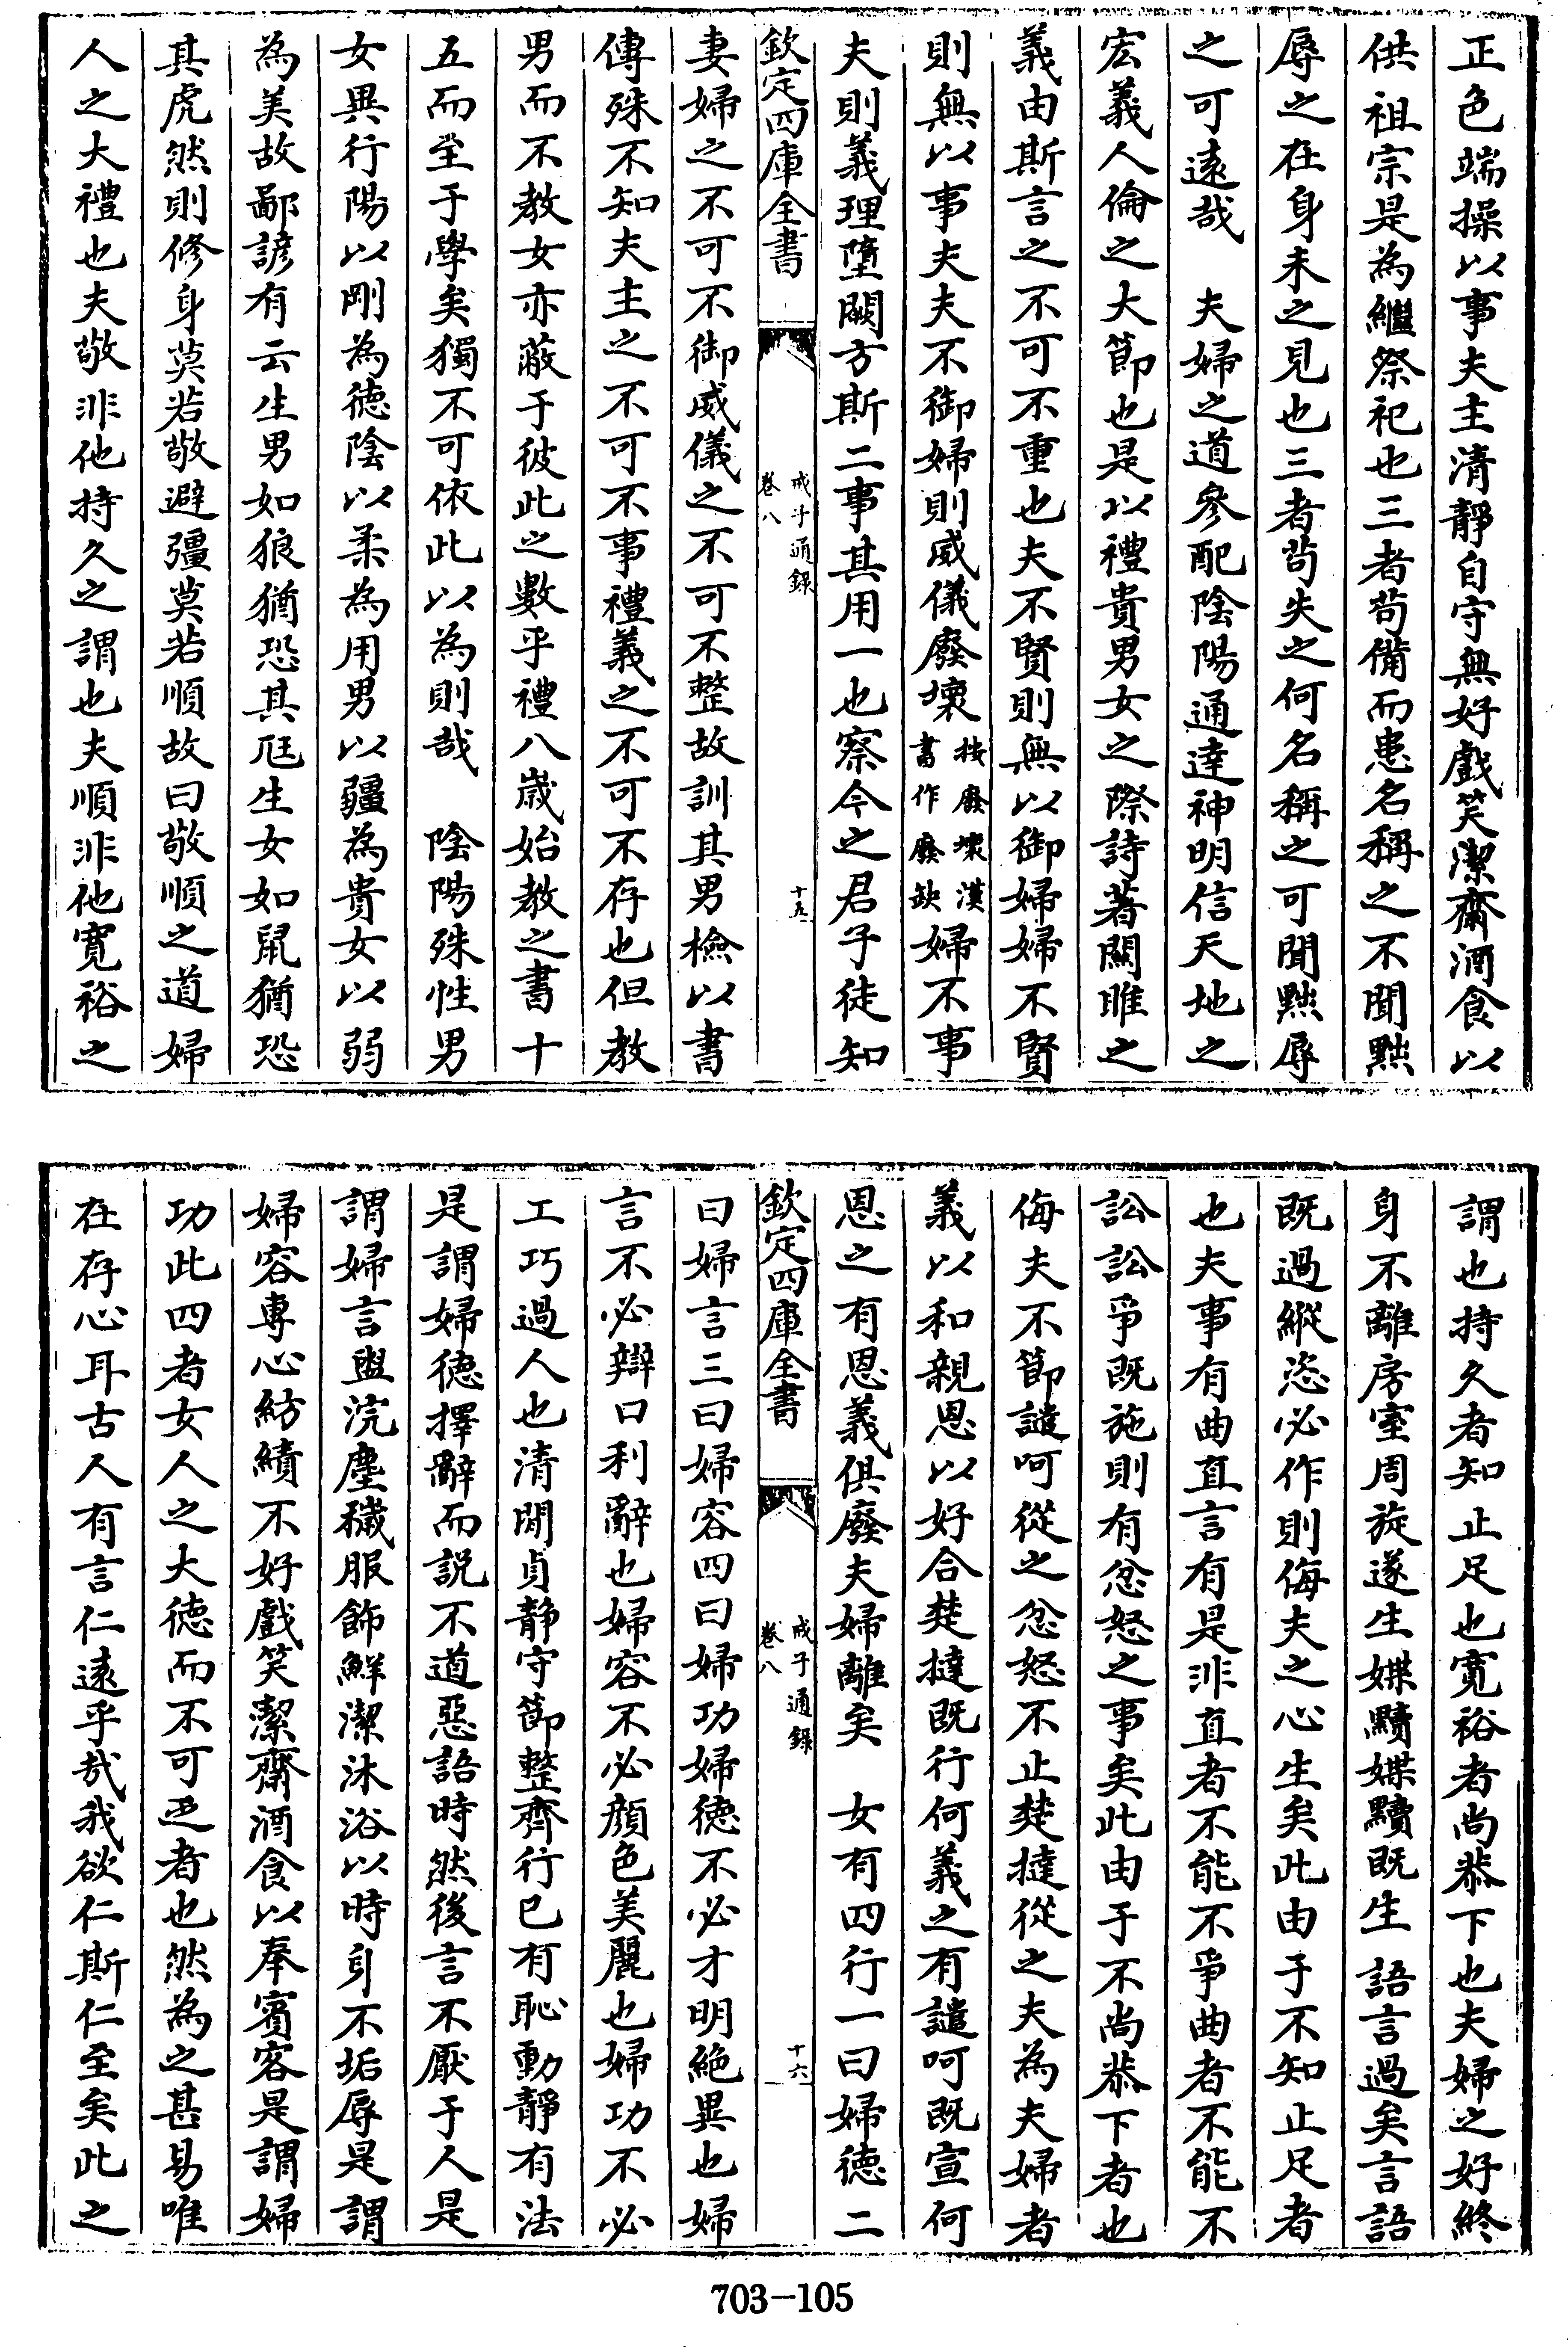 正色端操以事夫主清靜自守無好戲笑潔齊酒食以
供祖宗是為繼祭祀也三者苟備而患名稱之不聞黜
辱之在身未之見也三者苟失之何名稱之可聞黜辱
之可遠哉　夫婦之道參配陰陽通達神明信天地之
宏義人倫之大節也是以禮貴男女之際詩著關雎之
義由斯言之不可不重也夫不賢則無以御婦婦不賢
則無以事夫夫不御婦則威儀廢壞按廢壞漢書作廢缺婦不事
夫則義理墮闕方斯二事其用一也察今之君子徒知
欽定四庫全書
戒子通錄
卷八
十五
妻婦之不可不御威儀之不可不整故訓其男檢以書
傳殊不知夫主之不可不事禮義之不可不存也但教
男而不教女亦蔽于彼此之數乎禮八歲始教之書十
五而至于學矣獨不可依此以為則哉　陰陽殊性男
女異行陽以剛為德陰以柔為用男以彊為貴女以弱
為美故鄙諺有云生男如狼猶恐其尫生女如鼠猶恐
其虎然則修身莫若敬避彊莫若順故曰敬順之道婦
人之大禮也夫敬非他持久之謂也夫順非他寬裕之
謂也持久者知止足也寬裕者尚恭下也夫婦之好終
身不離房室周旋遂生媟黷媟黷既生語言過矣言語
既過縱恣必作則侮夫之心生矣此由于不知止足者
也夫事有曲直言有是非直者不能不爭曲者不能不
訟訟爭既施則有忿怒之事矣此由于不尚恭下者也
侮夫不節譴呵從之忿怒不止楚撻從之夫為夫婦者
義以和親恩以好合楚撻既行何義之有譴呵既宣何
恩之有恩義俱廢夫婦離矣　女有四行一曰婦德二
欽定四庫全書
戒子通錄
卷八
十六
曰婦言三曰婦容四曰婦功婦德不必才明絶異也婦
言不必辯口利辭也婦容不必顔色美麗也婦功不必
工巧過人也清閒貞靜守節整齊行已有恥動靜有法
是謂婦德擇辭而説不道惡語時然後言不厭于人是
謂婦言盥浣塵穢服飾鮮潔沐浴以時身不垢辱是謂
婦容專心紡績不好戲笑潔齊酒食以奉賓客是謂婦
功此四者女人之大德而不可乏者也然為之甚易唯
在存心耳古人有言仁遠乎哉我欲仁斯仁至矣此之
703-105